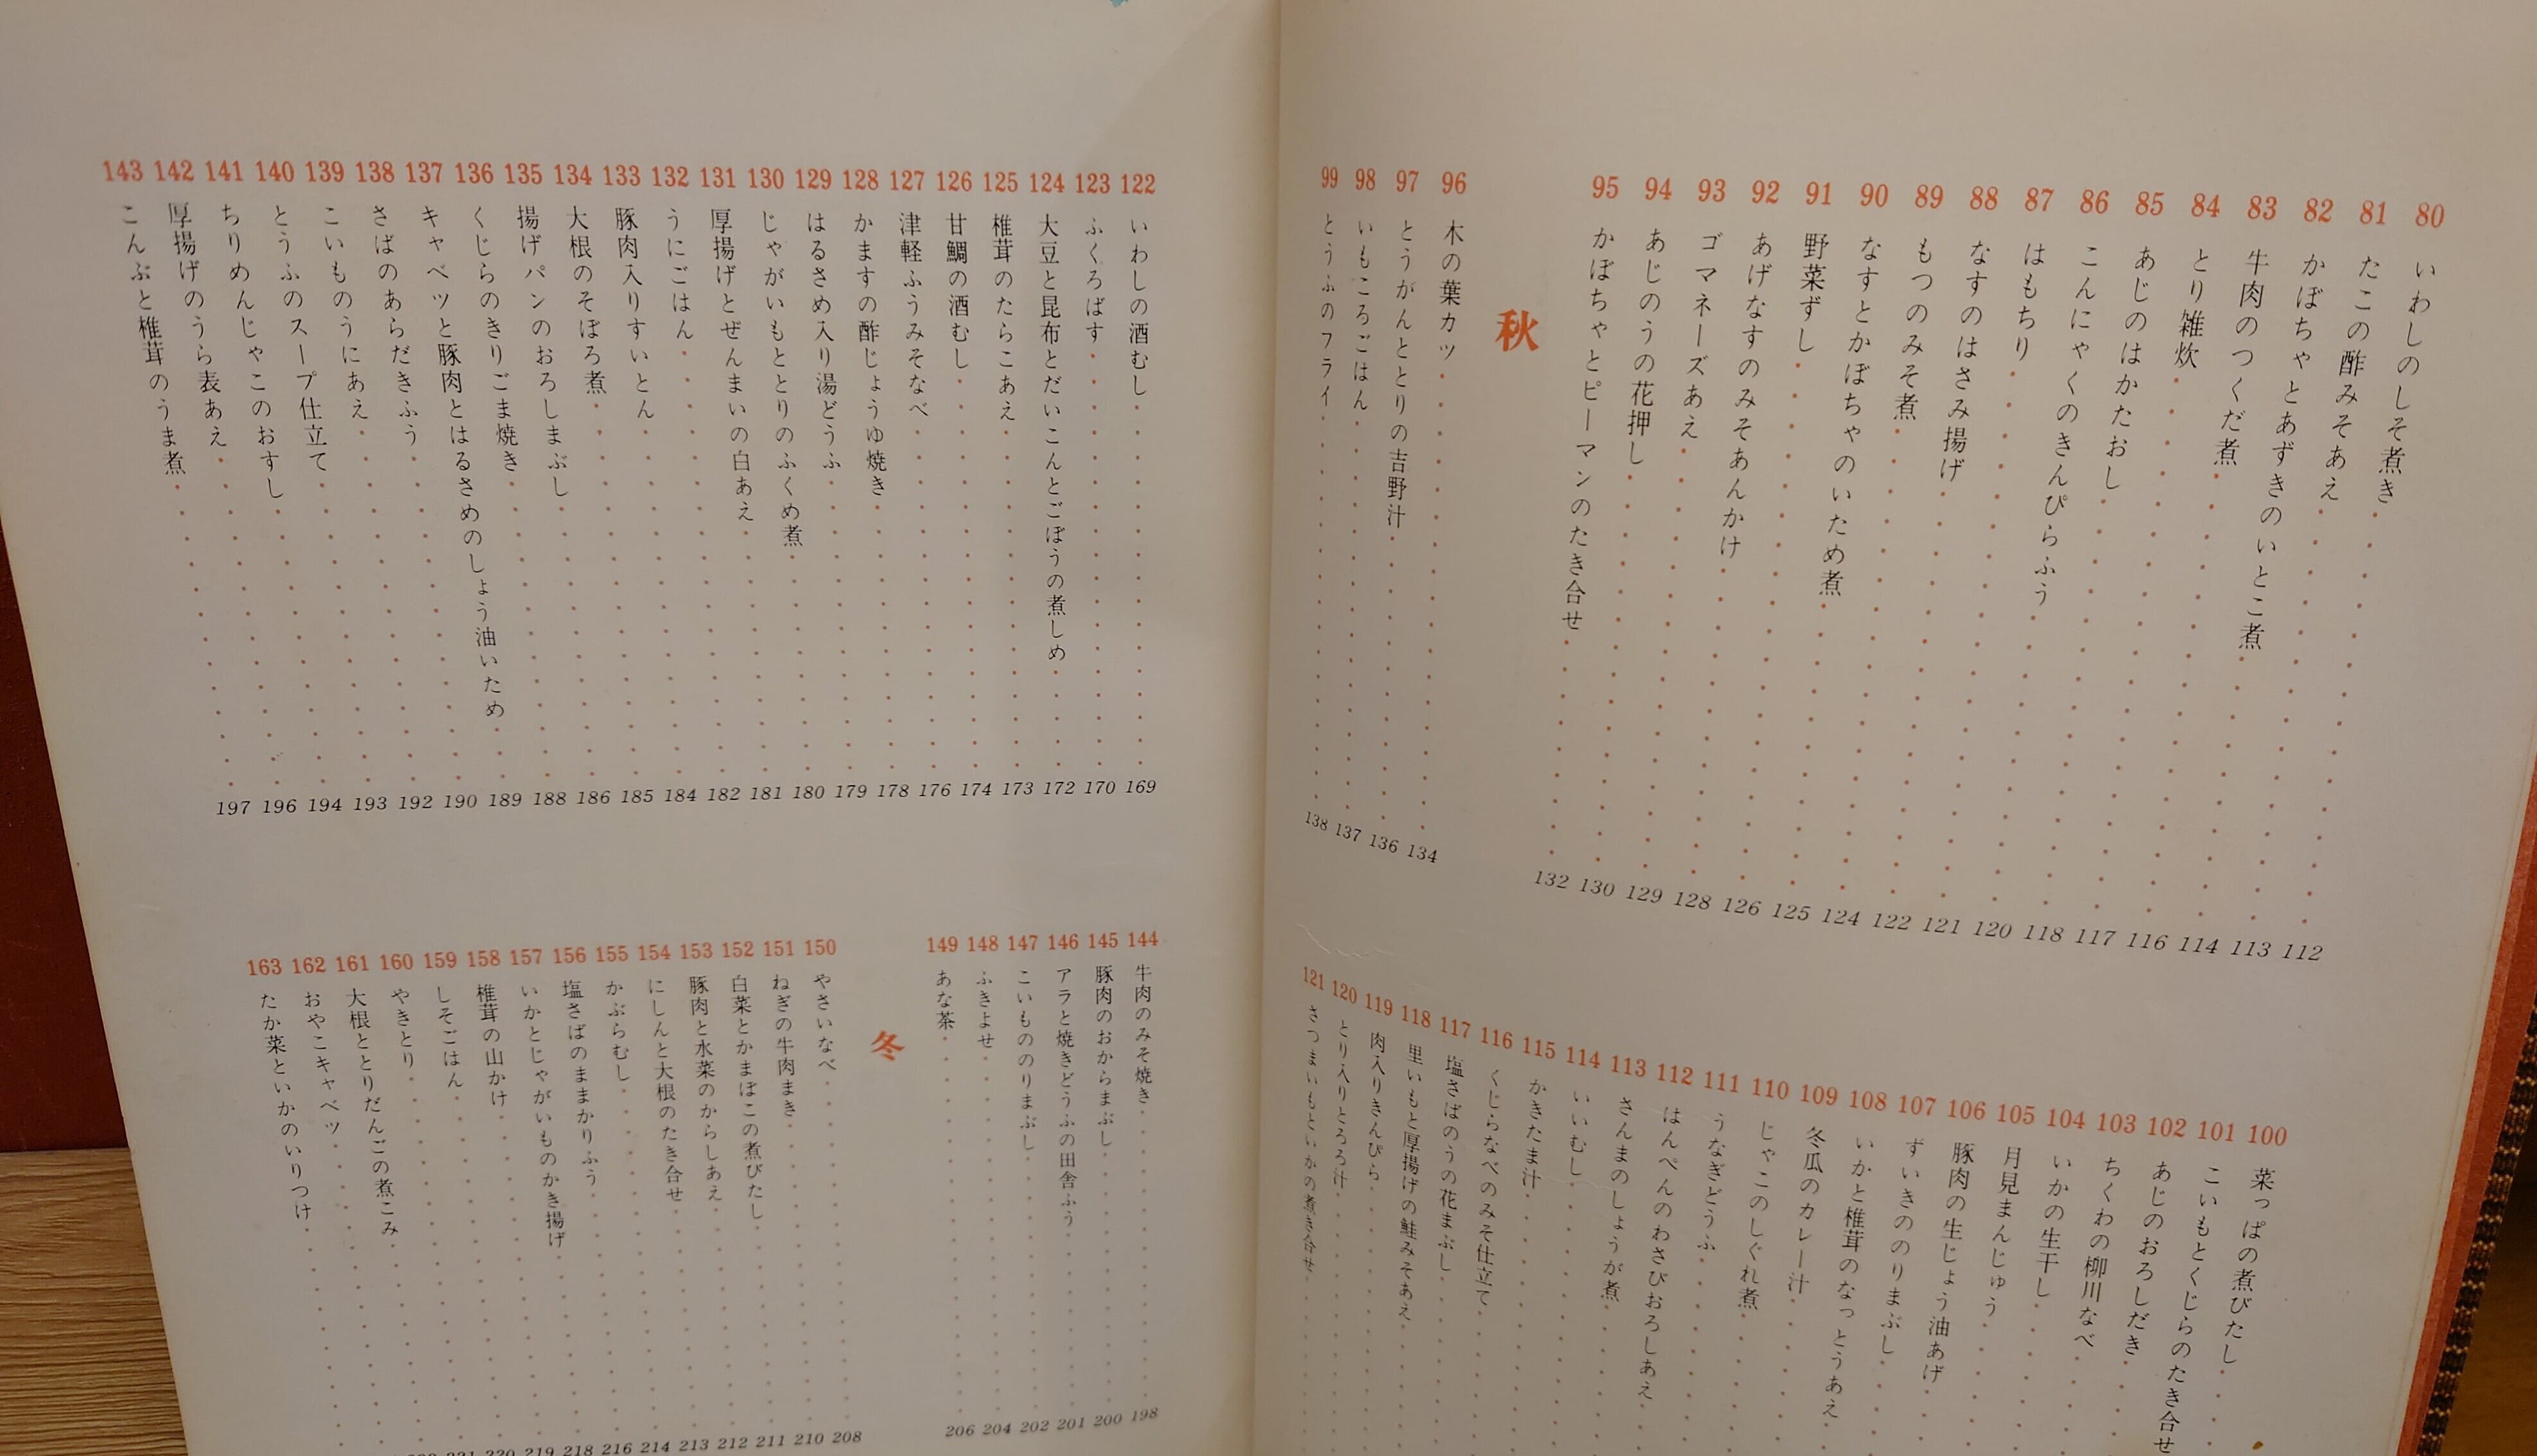 80 いわしのしそ煮き 112
81 たこの酢みそあえ 113
82 かぼちゃとあずきのいとこ煮 114
83 牛肉のつくだ煮 116
84 とり雑炊 117
85 あじのはかたおし 118
86 こんにゃくのきんぴらふう 120
87 はもちり 121
88 なすのはさみ揚げ 122
89 もつのみそ煮 124
90 なすとかぼちゃのいため煮 125
91 野菜ずし 126
92 あげなすのみそあんかけ 128
93 ゴマネーズあえ 129
94 あじのうの花押し 130
95 かぼちゃとピーマンのたき合せ 132
秋
96 木の葉カツ 134
97 とうがんととりの吉野汁 136
98 いもころごはん 137
99 とうふのフライ 138
100 菜っぱの煮びたし
101 こいもとくじらのたき合せ
102 あじのおろしだき
103 ちくわの柳川なべ
104 いかの生干し
105 月見まんじゅう
106 豚肉の生じょう油あげ
107 ずいきののりまぶし
108 いかと椎茸のなっとうあえ
109 冬瓜のカレー汁
110 じゃこのしぐれ煮
111 うなぎどうふ
112 はんぺんのわさびおろしあえ
113 さんまのしょうが煮
114 いいむし
115 かきたま汁
116 くじらなべのみそ仕立て
117 塩さばのうの花まぶし
118 里いもと厚揚げの鮭みそあえ
119 肉入りきんぴら
120 とり入りとろろ汁
121 さつまいもといかの煮き合せ
122 いわしの酒むし 169
123 ふくろばす 170
124 大豆と昆布とだいこんとごぼうの煮しめ 172
125 椎茸のたらこあえ 173
126 甘鯛の酒むし 174
127 津軽ふうみそなべ 176
128 かますの酢じょうゆ焼き 178
129 はるさめ入り湯どうふ 179
130 じゃがいもととりのふくめ煮 180
131 厚揚げとぜんまいの白あえ 181
132 うにごはん 182
133 豚肉入りすいとん 184
134 大根のそぼろ煮 185
135 揚げパンのおろしまぶし 186
136 くじらのきりごま焼き 188
137 キャベツと豚肉とはるさめのしょう油いため 189
138 さばのあらだきふう 190
139 こいものうにあえ 192
140 とうふのスープ仕立て 193
141 ちりめんじゃこのおすし 194
142 厚揚げのうら表あえ 196
143 こんぶと椎茸のうま煮 197
144 牛肉のみそ焼き 198
145 豚肉のおからまぶし 200
146 アラと焼きどうふの田舎ふう 201
147 こいもののりまぶし 202
148 ふきよせ 204
149 あな茶 206
冬
150 やさいなべ 208
151 ねぎの牛肉まき 210
152 白菜とかまぼこの煮びたし 211
153 豚肉と水菜のからしあえ 212
154 にしんと大根のたき合せ 213
155 かぶらむし 214
156 塩さばのままかりふう 216
157 いかとじゃがいものかき揚げ 218
158 椎茸の山かけ 219
159 しそごはん 220
160 やきとり 221
161 大根ととりだんごの煮こみ
162 おやこキャベツ
163 たか菜といかのいりつけ